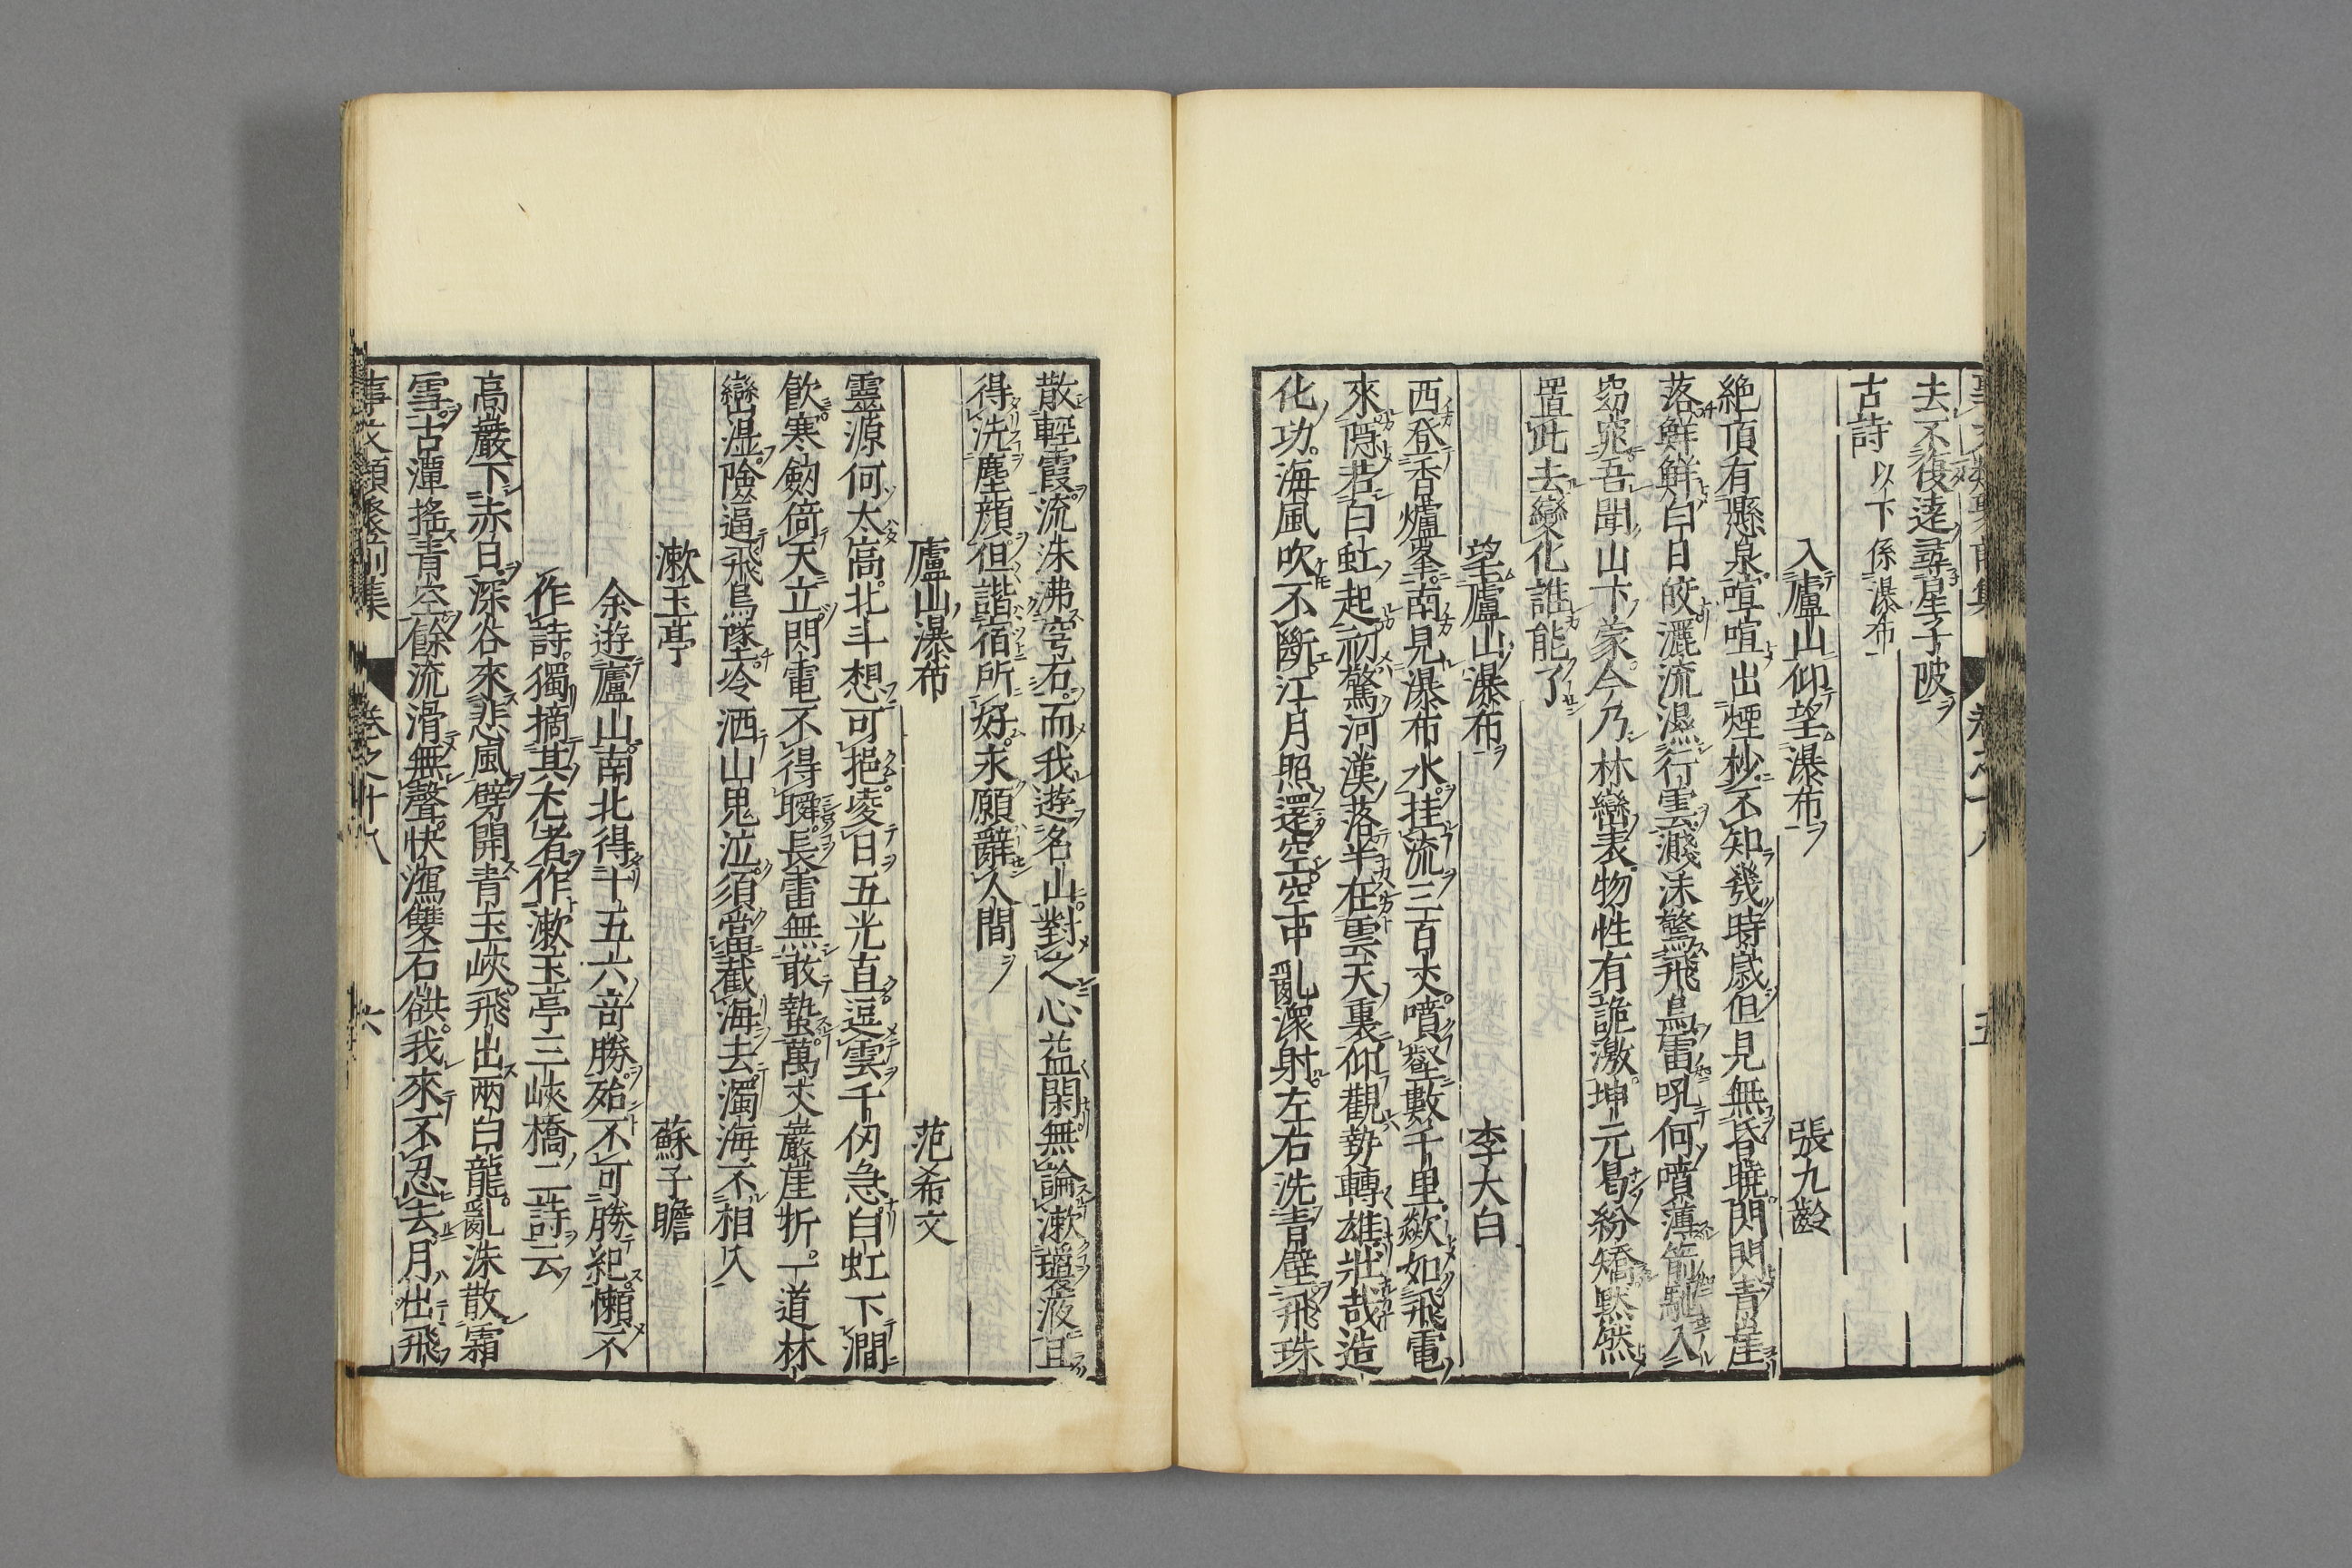 去不復逹尋星子陂
古詩 以下係瀑布
入廬山仰望瀑布 張九齡
絶頂有懸泉喧喧出煙杪不知幾時歲但見無昏曉閃閃青崖
落鮮鮮白日皎灑流濕行雲濺沫驚飛鳥雷吼何噴薄箭馳入
窈窕吾聞山下蒙今乃林巒表物性有詭激坤元曷紛矯默然
置此去變化誰能了
望廬山瀑布 李太白
西登香爐峯南見瀑布水挂流三百丈噴壑數千里歘如飛電
來隱若白虹起初驚河漢落半在雲天裏仰觀勢轉雄壯哉造
化功海風吹不斷江月照還空空中亂潨射左右洗青壁飛珠
散輕霞流沫沸穹石而我遊名山對之心益閑無論漱瓊液且
得洗塵顔但諧宿所好永願辭人間
廬山瀑布 范希文
靈源何太高北斗想可挹凌日五光直逗雲千仞急白虹下澗
飲寒劒倚天立閃電不得瞬長雷無敢蟄萬丈巖崖折一道林
巒湿險逼飛鳥墜冷洒山鬼泣須當截海去濁海不相入
漱玉亭 蘇子瞻
余遊廬山南北得十五六奇勝殆不可勝紀懶不
作詩獨摘其尤者作漱玉亭三峽橋二詩云
高巖下赤日深谷來悲風劈開青玉峽飛出兩白龍亂沫散霜
雪古潭搖青空餘流滑無聲快瀉雙石谼我來不忍去月出飛
事文類聚前集 卷之十八 六